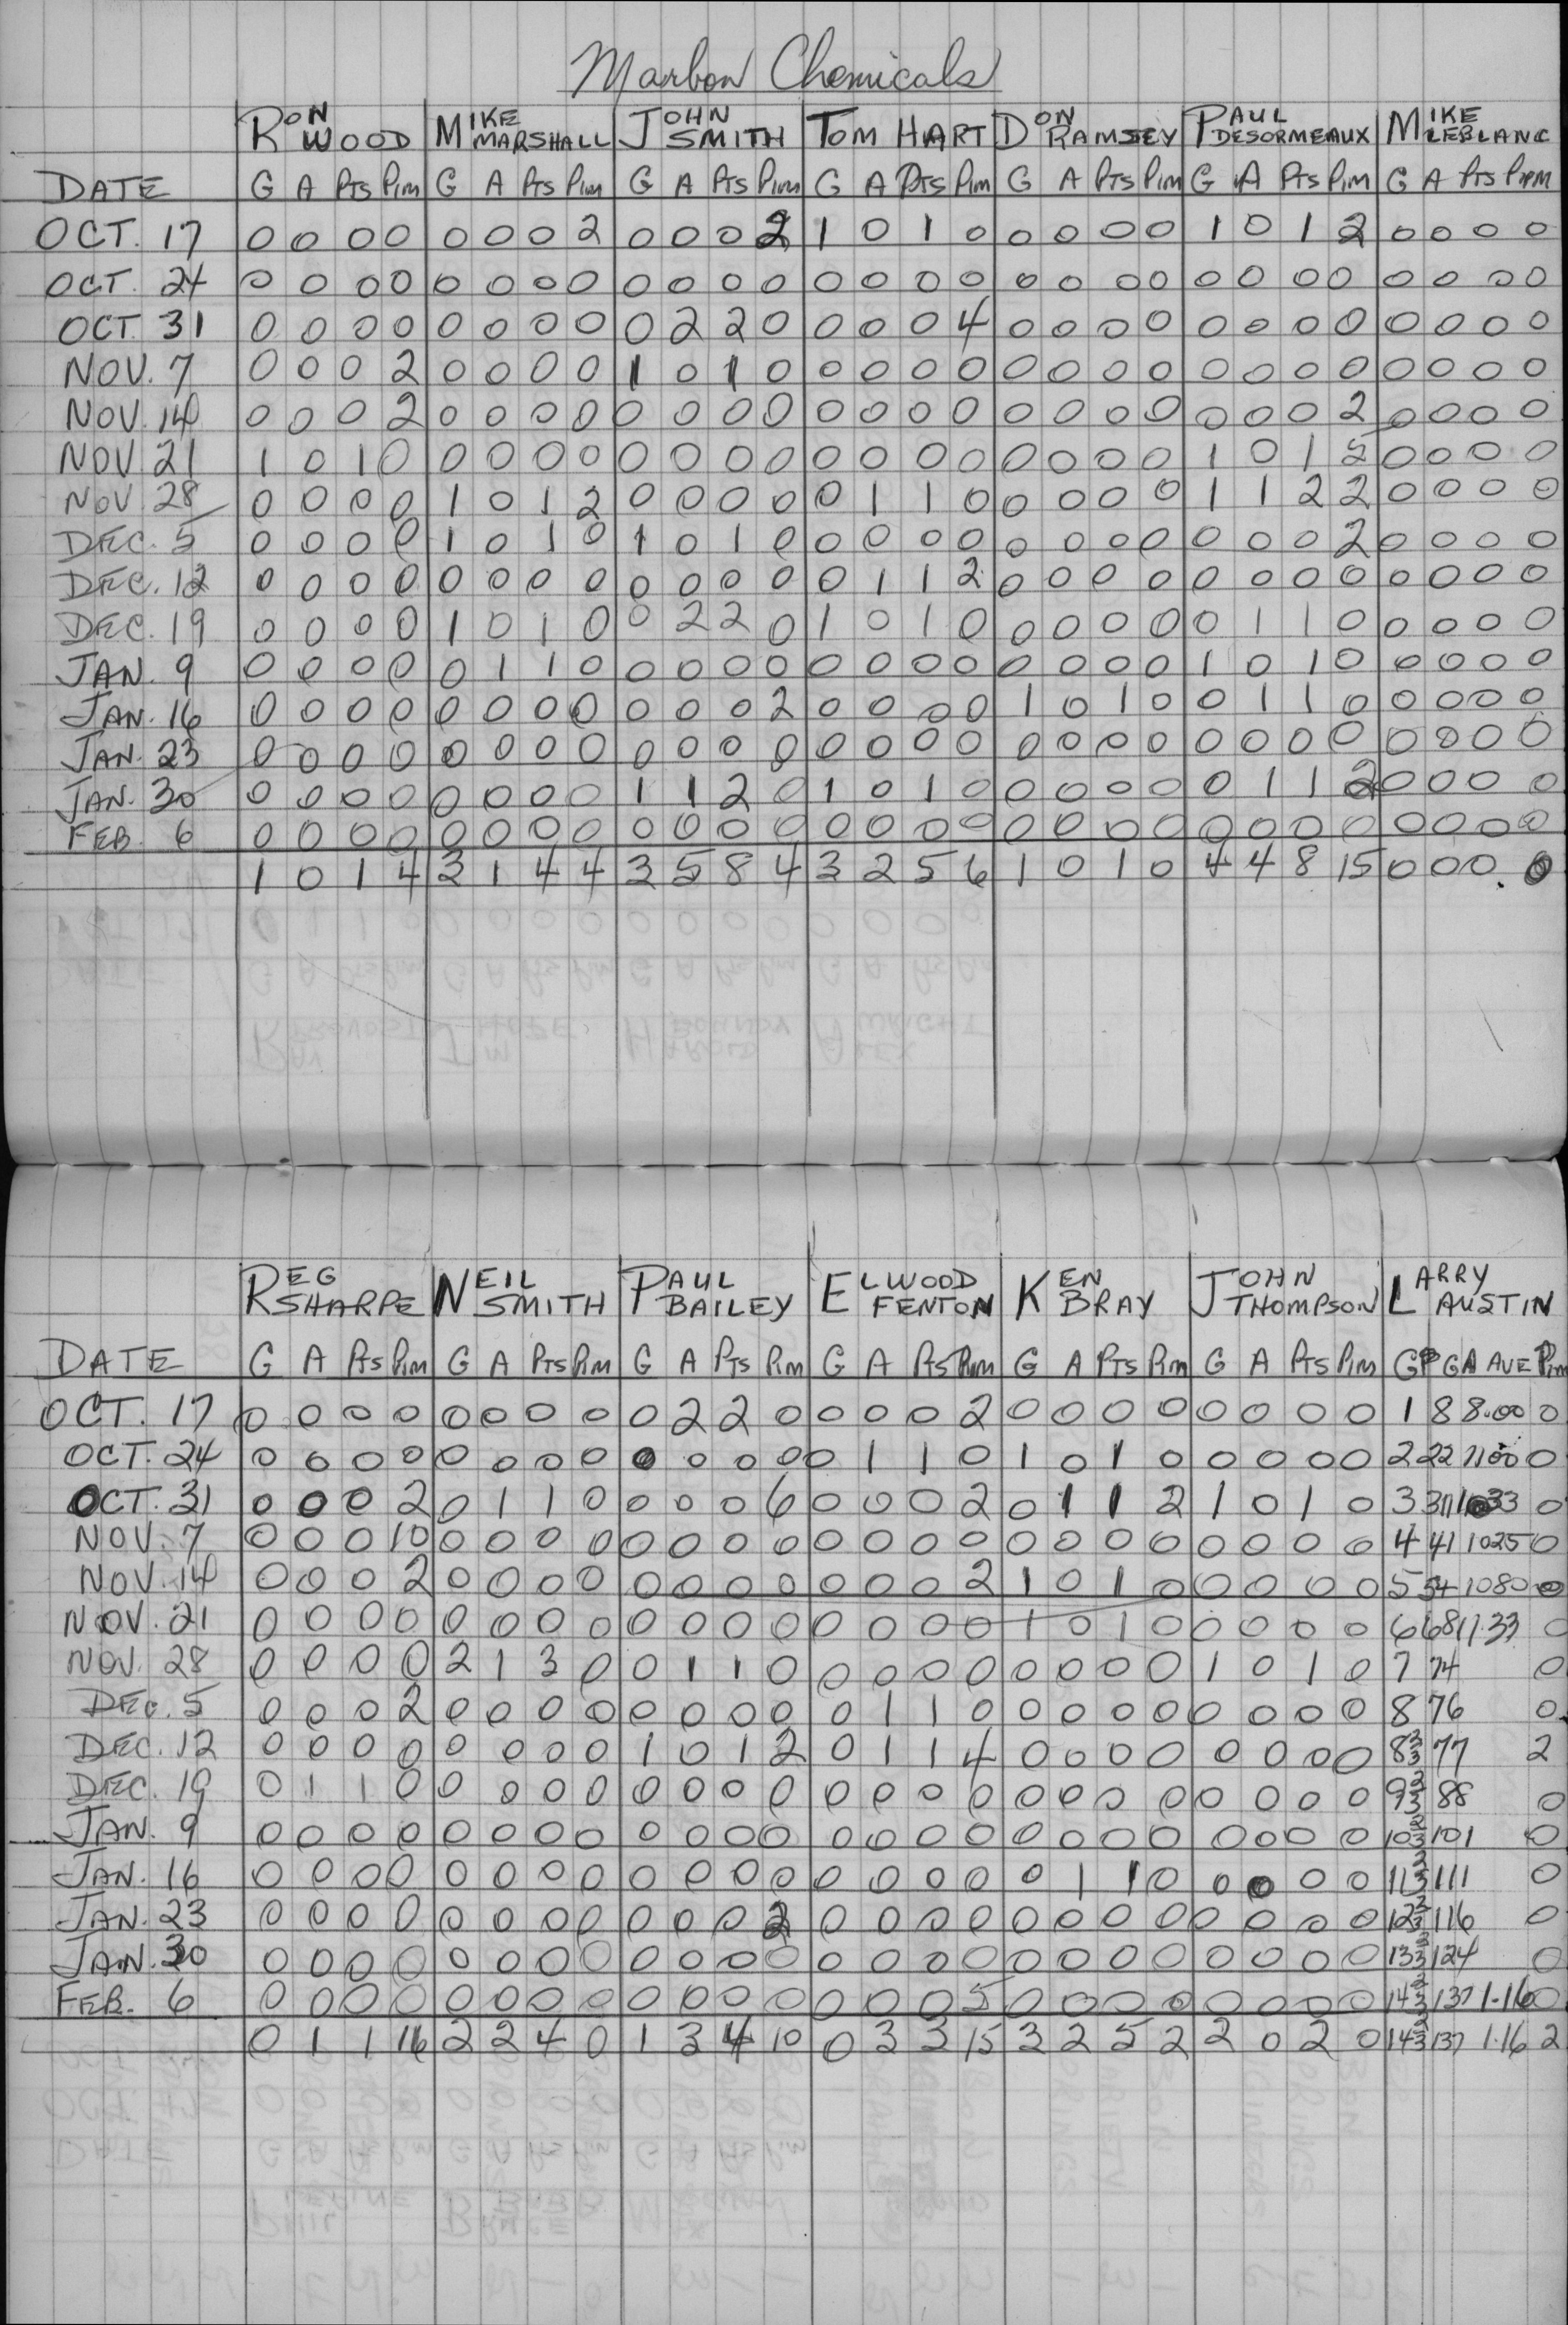 Marbon Chemicals
RON WOOD MIKE MARSHALL JOHN SMITH TOM HART DON RAMSEY PAUL DESORMEAUX MIKE LEBLANC
DATE G A Pts Pim G A Pts Pim G A Pts Pim G A Pts Pim G A Pts Pim G A Pts Pim G A Pts Pim
OCT. 17 0 0 0 0 0 0 0 2 0 0 0 2 1 0 1 0 0 0 0 0 1 0 1 2 0 0 0 0
OCT. 24 0 0 0 0 0 0 0 0 0 0 0 0 0 0 0 0 0 0 0 0 0 0 0 0 0 0 0 0
OCT. 31 0 0 0 0 0 0 0 0 0 2 2 0 0 0 0 4 0 0 0 0 0 0 0 0 0 0 0 0
NOV. 7 0 0 0 2 0 0 0 0 1 0 1 0 0 0 0 0 0 0 0 0 0 0 0 0 0 0 0 0
NOV. 14 0 0 0 2 0 0 0 0 0 0 0 0 0 0 0 0 0 0 0 0 0 0 0 2 0 0 0 0
NOV 21 1 0 1 0 0 0 0 0 0 0 0 0 0 0 0 0 0 0 0 0 1 0 1 5 0 0 0 0
NOV 28 0 0 0 0 1 0 1 2 0 0 0 0 0 1 1 0 0 0 0 0 1 1 2 2 0 0 0 0
DEC. 5 0 0 0 0 1 0 1 0 1 0 1 0 0 0 0 0 0 0 0 0 0 0 0 2 0 0 0 0
DEC. 12 0 0 0 0 0 0 0 0 0 0 0 0 0 1 1 2 0 0 0 0 0 0 0 0 0 0 0 0
DEC. 19 0 0 0 0 1 0 1 0 0 2 2 0 1 0 1 0 0 0 0 0 0 1 1 0 0 0 0 0
JAN. 9 0 0 0 0 0 1 1 0 0 0 0 0 0 0 0 0 0 0 0 0 1 0 1 0 0 0 0 0
JAN. 16 0 0 0 0 0 0 0 0 0 0 0 2 0 0 0 0 1 0 1 0 0 1 1 0 0 0 0 0
JAN. 23 0 0 0 0 0 0 0 0 0 0 0 0 0 0 0 0 0 0 0 0 0 0 0 0 0 0 0 0
JAN. 30 0 0 0 0 0 0 0 0 1 1 2 0 1 0 1 0 0 0 0 0 0 1 1 2 0 0 0 0
FEB. 6 0 0 0 0 0 0 0 0 0 0 0 0 0 0 0 0 0 0 0 0 0 0 0 0 0 0 0 0
1 0 1 4 3 1 4 4 3 5 8 4 3 2 5 6 1 0 1 0 4 4 8 15 0 0 0 0
REG SHARPE NEIL SMITH PAUL BAILEY ELWOOD FENTON KEN BRAY JOHN THOMPSON LARRY AUSTIN
DATE G A Pts Pim G A Pts Pim G A Pts Pim G A Pts Pim G A Pts Pim G A Pts Pim GP GA AVE Pim
OCT. 17 0 0 0 0 0 0 0 0 0 2 2 0 0 0 0 2 0 0 0 0 0 0 0 0 1 8 8.00 0
OCT. 24 0 0 0 0 0 0 0 0 0 0 0 0 0 1 1 0 1 0 1 0 0 0 0 0 2 22 11.00 0
OCT. 31 0 0 0 2 0 1 1 0 0 0 0 6 0 0 0 2 0 1 1 2 1 0 1 0 3 31 33 0
NOV. 7 0 0 0 10 0 0 0 0 0 0 0 0 0 0 0 0 0 0 0 0 0 0 0 0 4 41 1025 0
NOV. 14 0 0 0 2 0 0 0 0 0 0 0 0 0 0 0 2 1 0 1 0 0 0 0 0 5 54 1080 0
NOV. 21 0 0 0 0 0 0 0 0 0 0 0 0 0 0 0 0 1 0 1 0 0 0 0 0 6 68 11.33 0
NOV. 28 0 0 0 0 2 1 3 0 0 1 1 0 0 0 0 0 0 0 0 0 1 0 1 0 7 74 0
DEC. 5 0 0 0 2 0 0 0 0 0 0 0 0 0 1 1 0 0 0 0 0 0 0 0 0 8 76 0
DEC. 12 0 0 0 0 0 0 0 0 1 0 1 2 0 1 1 4 0 0 0 0 0 0 0 0 8 2/3 77 2
DEC. 19 0 1 1 0 0 0 0 0 0 0 0 0 0 0 0 0 0 0 0 0 0 0 0 0 9 2/3 88 0
JAN. 9 0 0 0 0 0 0 0 0 0 0 0 0 0 0 0 0 0 0 0 0 0 0 0 0 10 2/3 101 0
JAN. 16 0 0 0 0 0 0 0 0 0 0 0 0 0 0 0 0 0 1 1 0 0 0 0 0 11 2/3 111 0
JAN. 23 0 0 0 0 0 0 0 0 0 0 0 2 0 0 0 0 0 0 0 0 0 0 0 0 12 2/3 116 0
JAN. 30 0 0 0 0 0 0 0 0 0 0 0 0 0 0 0 0 0 0 0 0 0 0 0 0 13 2/3 124 0
FEB. 6 0 0 0 0 0 0 0 0 0 0 0 0 0 0 0 5 0 0 0 0 0 0 0 0 14 2/3 137 1.16 0
0 1 1 16 2 2 4 0 1 3 4 10 0 3 3 15 3 2 5 2 2 0 2 0 14 2/3 137 1.16 2